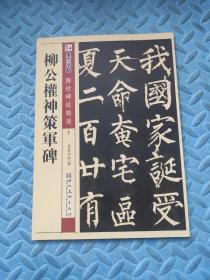 我國家誕受
天命奄宅區
夏二百廿有
傳世碑帖精選
柳公權神策軍碑